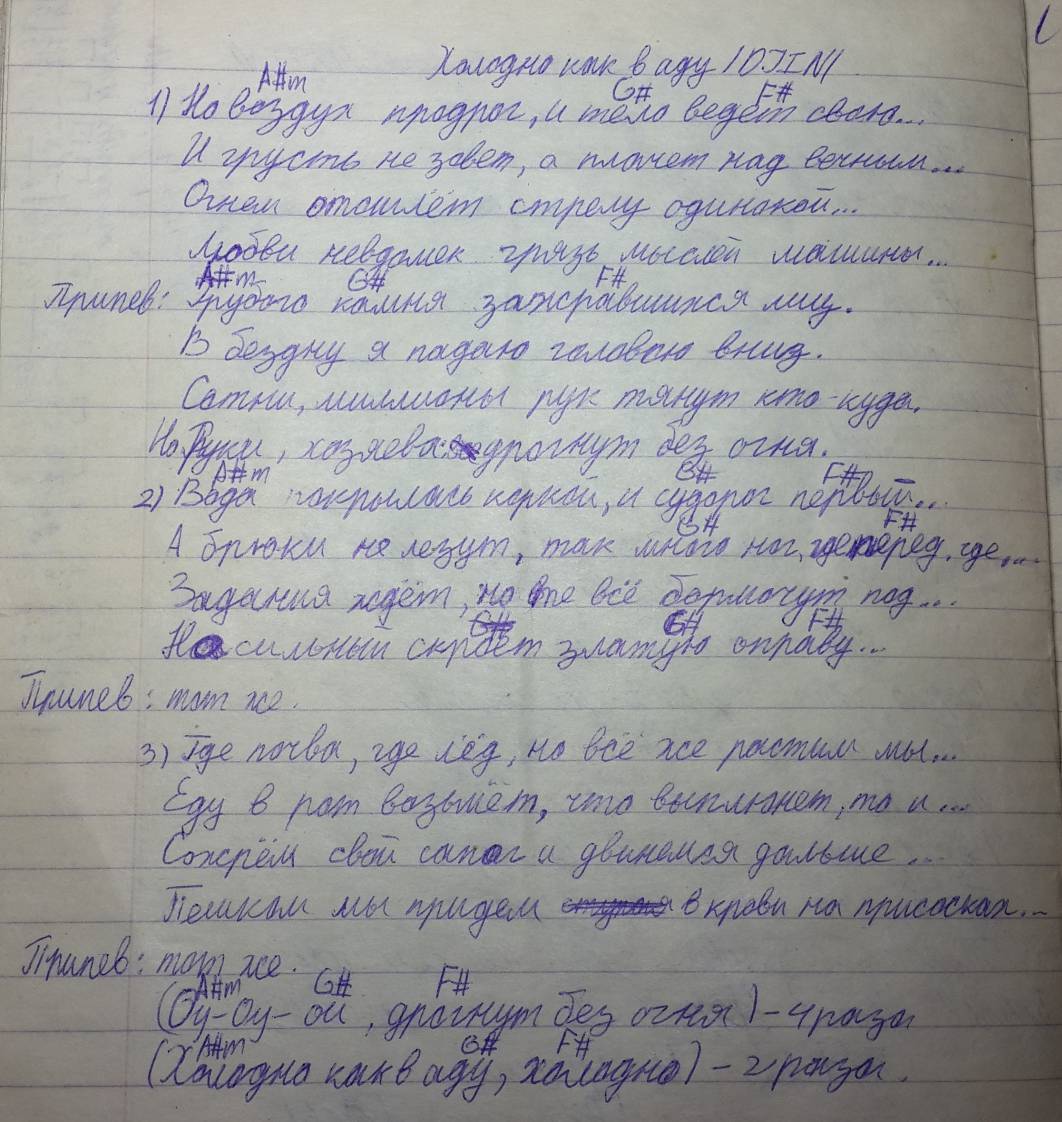 Холодно как в аду /DJIN/
A#m G# F#
1) Но воздух продрог, и тело ведёт свою...
И грусть не зовет, а плачет над вечным...
Огнем отошлёт стрелу одинокой...
Любви невдомек грязь мыслей машины...
A#m G# F#
Припев: Грубого камня зажравшихся лиц.
В бездну я падаю головою вниз.
Сотни, миллионы рук тянут кто-куда.
Но Руки, хозяева дрогнут без огня.
A#m G# F#
2) Вода покрылась коркой, и судорог первый...
G# F#
А брюки не лезут, так много ног, где перед, где...
Задания ждёт, но те всё бормочут под...
G# G# F#
Насильный скроет златую оправу...
Припев: тот же.
3) Где почва, где лёд, но всё же растим мы...
Еду в рот возьмёт, что выплюнет, то и...
Сожрём свой сапог и двинемся дальше...
Пешком мы придем в крови на присосках...
Припев: тот же.
A#m G# F#
(Оу-Оу-ой, дрогнут без огня) - 4 раза
A#m G# F#
(Холодно как в аду, холодно) - 2 раза.